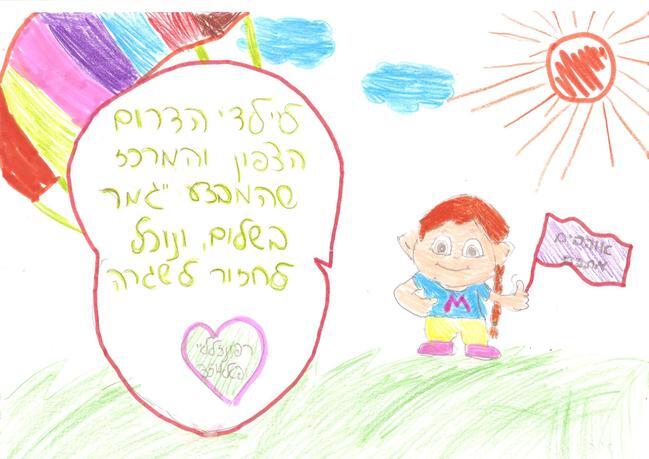 לילדי הדרום
הצפון והמרכז
שהמבצע יגמר
בשלום, ונוכל
לחזור לשגרה
אוהבים
M